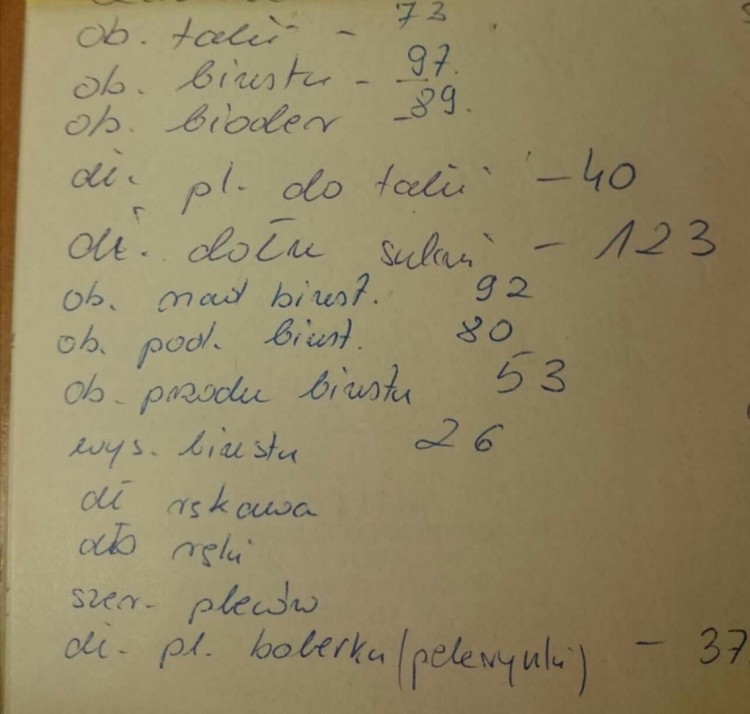 ob. talii - 73
ob. biustu - 97.
ob. bioder - 89.
dł. pl. do talii - 40
dł. dołu sukni - 123
ob. nad biust. 92
ob. pod. biust. 80
ob. przodu biustu 53
wys. biustu 26
dł rękawa
dło ręki
szer. pleców
dł. pl. bolerka (pelerynki) - 37